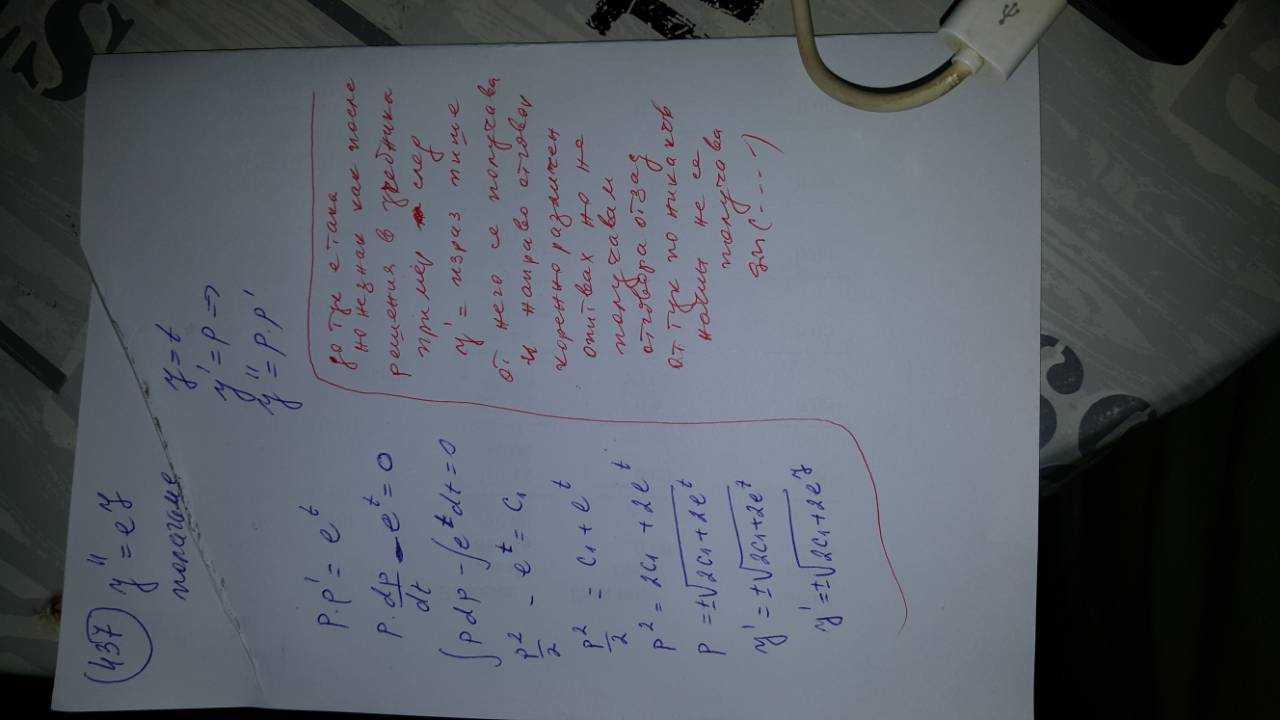 437
y'' = e^y
полагаме
y = t
y' = p ⇒
y'' = p.p'
p.p' = e^t
p. dp/dt - e^t = 0
∫p dp - ∫e^t dt = 0
p²/2 - e^t = c₁
p²/2 = c₁ + e^t
p² = 2c₁ + 2e^t
p = ±√2c₁ + 2e^t
y' = ±√2c₁ + 2e^t
y' = ±√2c₁ + 2e^y
до тук е така
но незнак как после
решения в учебника
пример след
y' = израз пише
от него се получава
и направо отговор
коренно различен
опитвах но не
получавам
отговора отзад
от тук по никакъв
начин не се
получава
sin(....)